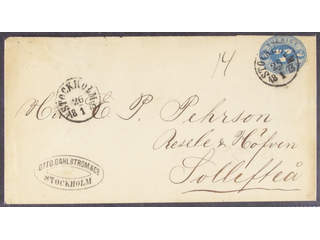 14
STOCKHOLM
26
1
STOCKHOLM
26
1
E. P. Pehrson
Resele & Höfven
Sollefteå
OTTO DAHLSTROM & Co
STOCKHOLM